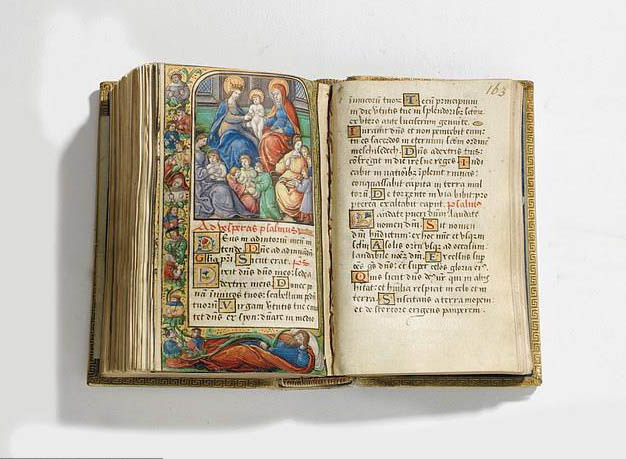 Ad vesperas psalmus
Deus in adiutoriū meū in
tende. Dne ad adiuvandū
Glia pri. Sicut erat. Ps
Dixit dn̄s dn̄o meo: sede a
dextris meis. Donec po
nā inimicos tuos: scabellum pedū
tuorū. Virgam virtutis tue emi
tet dn̄s ex syon: dnare in medio
163
inimicorū tuorꝝ. Tecū principium
in die virtutis tue in splendoribꝰ sctoꝝ:
ex utero ante luciferum genui te.
Iuravit dn̄s et non penitebit eum:
tu es sacerdos in eternum scdm ordinē
melchisedech. Dn̄s a dextris tuis:
cōfregit in die ire sue reges. Iudi
cabit in nationibꝰ īplebit ruinas:
conquassabit capita in terra mul
torū. De torrente in via bibit: pro
pterea exaltabit caput. psalmus
Laudate pueri dn̄m: laudate
nomen dn̄i. Sit nomen
dn̄i bn̄dictum: ex hoc nūc et usqꝫ in
sclm̄. A solis ortu usqꝫ ad occasum:
laudabile nomē dn̄i. Excelsus sup
oēs gētes dn̄s: et super celos gloria eiꝰ.
Quis sicut dn̄s dꝰ nr̄ qui in altis
habitat: et humilia respicit in celo et in
terra. Suscitans a terra inopem:
et de stercore erigens pauperem.